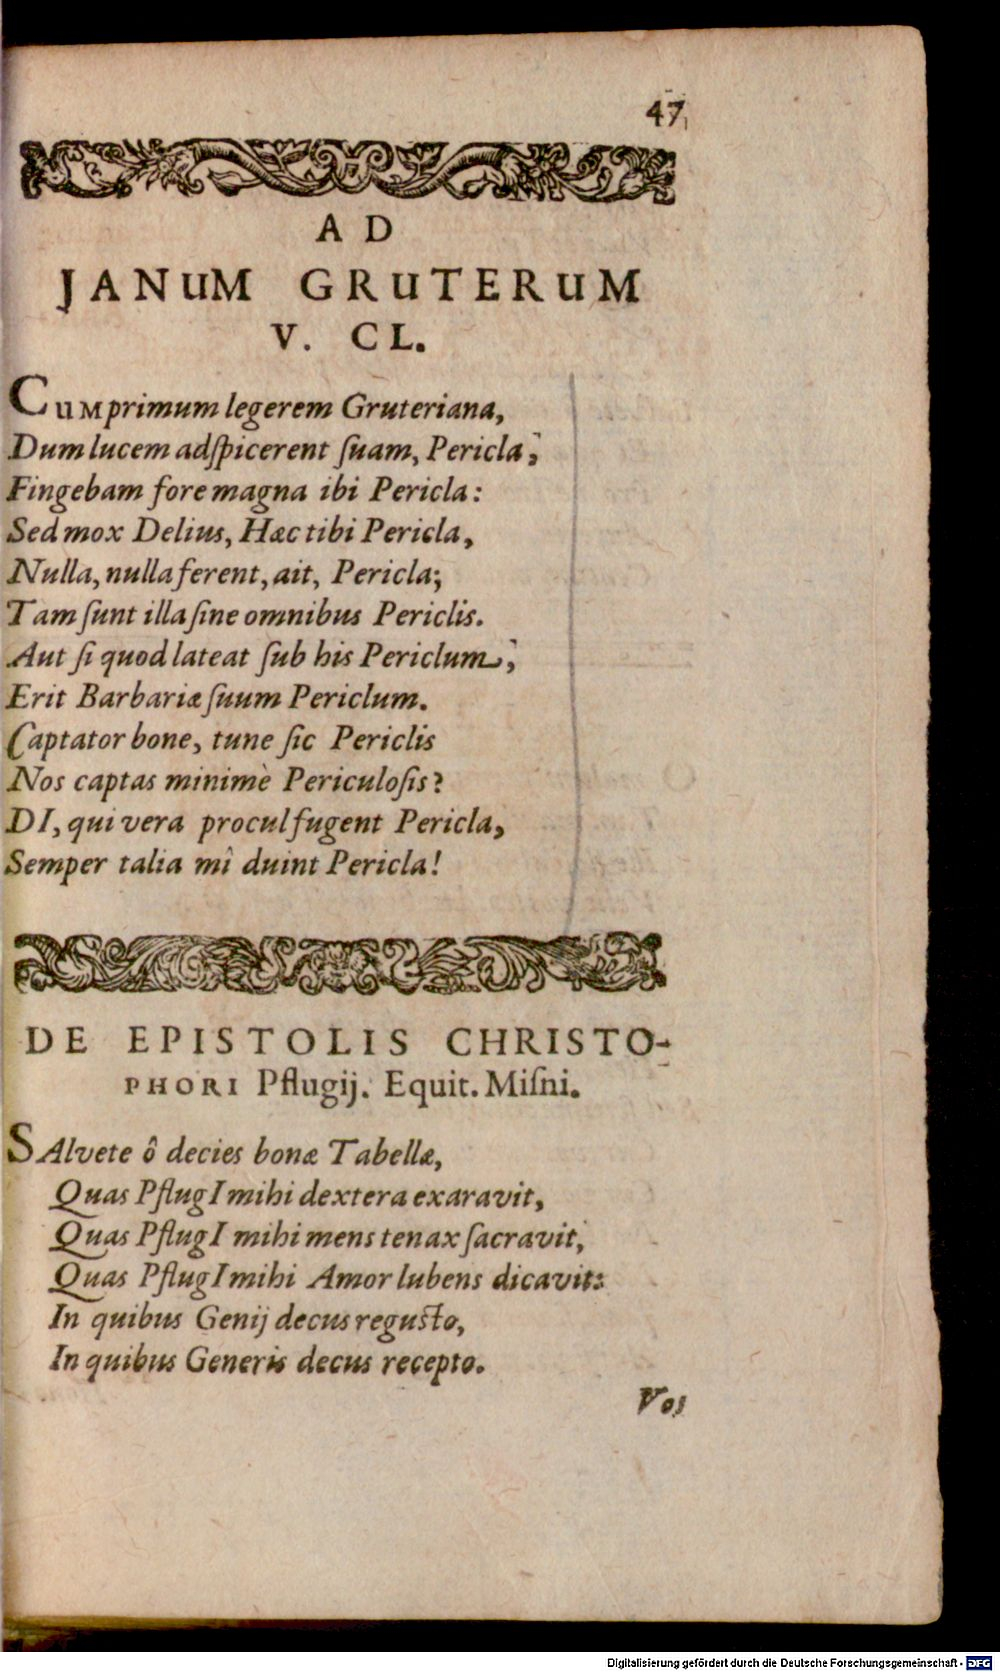 47
A D
JANUM GRUTERUM
V. CL.
CUM primum legerem Gruteriana,
Dum lucem adſpicerent ſuam, Pericla;
Fingebam fore magna ibi Pericla:
Sed mox Delius, Hæc tibi Pericla,
Nulla, nulla ferent, ait, Pericla;
Tam ſunt illa ſine omnibus Periclis.
Aut ſi quod lateat ſub his Periclum,
Erit Barbariæ ſuum Periclum.
Captator bone, tune ſic Periclis
Nos captas minimè Periculoſis?
DI, qui vera procul fugent Pericla,
Semper talia mî duint Pericla!
DE EPISTOLIS CHRISTO-
PHORI Pflugij. Equit. Miſni.
SAlvete ô decies bonæ Tabellæ,
Quas PflugI mihi dextera exaravit,
Quas PflugI mihi mens tenax ſacravit,
Quas PflugI mihi Amor lubens dicavit:
In quibus Genij decus reguſto,
In quibus Generis decus recepto.
Vos
Digitalisierung gefördert durch die Deutsche Forschungsgemeinschaft - DFG